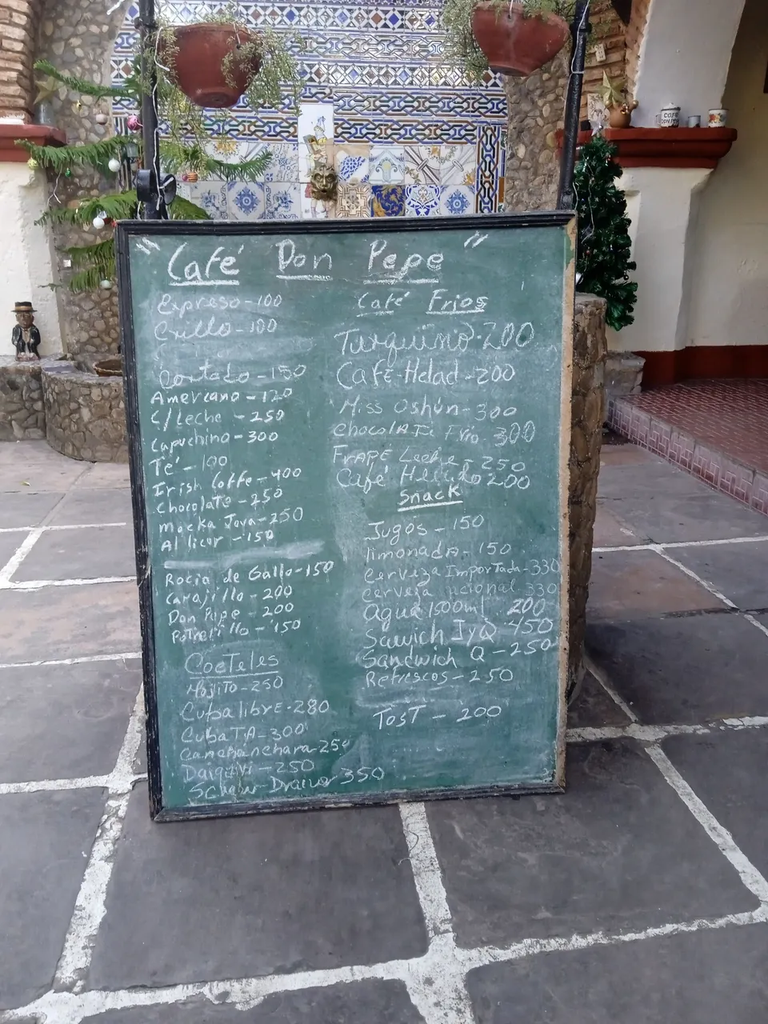 "Café Don Pepe"
Expreso-100
Crillo-100
Cortado-150
Americano-120
C/Leche-250
Capuchino-300
Te'-100
Irish Coffe-400
Chocolate-250
Macka Java-250
Al licor-150
Rocia de Gallo-150
Carajillo-200
Don Pepe-200
Potrerillo-150
Cocteles
Mojito-250
Cuba libre-280
CubaTA-300
Canchanchara-250
Daiquiri-250
350
Café Frios
Turquino-200
Café-Helad-200
Miss Oshún-300
Chocolate Frio-300
Frape Leche-250
Café Helido 200
Snack
Jugos-150
limonada-150
Cerveza Importada-330
Cerveza nacional 330
Agua 1500ml 200
Sawich JyQ 450
Sandwich Q-250
Refrescos-250
TosT-200